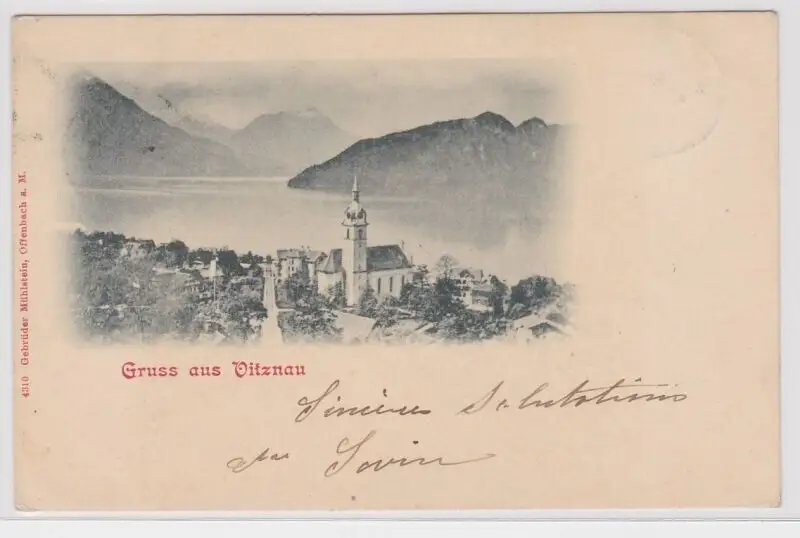 4310 Gebrüder Mühlstein, Offenbach a. M.
Gruss aus Vitznau
Sincères Salutations